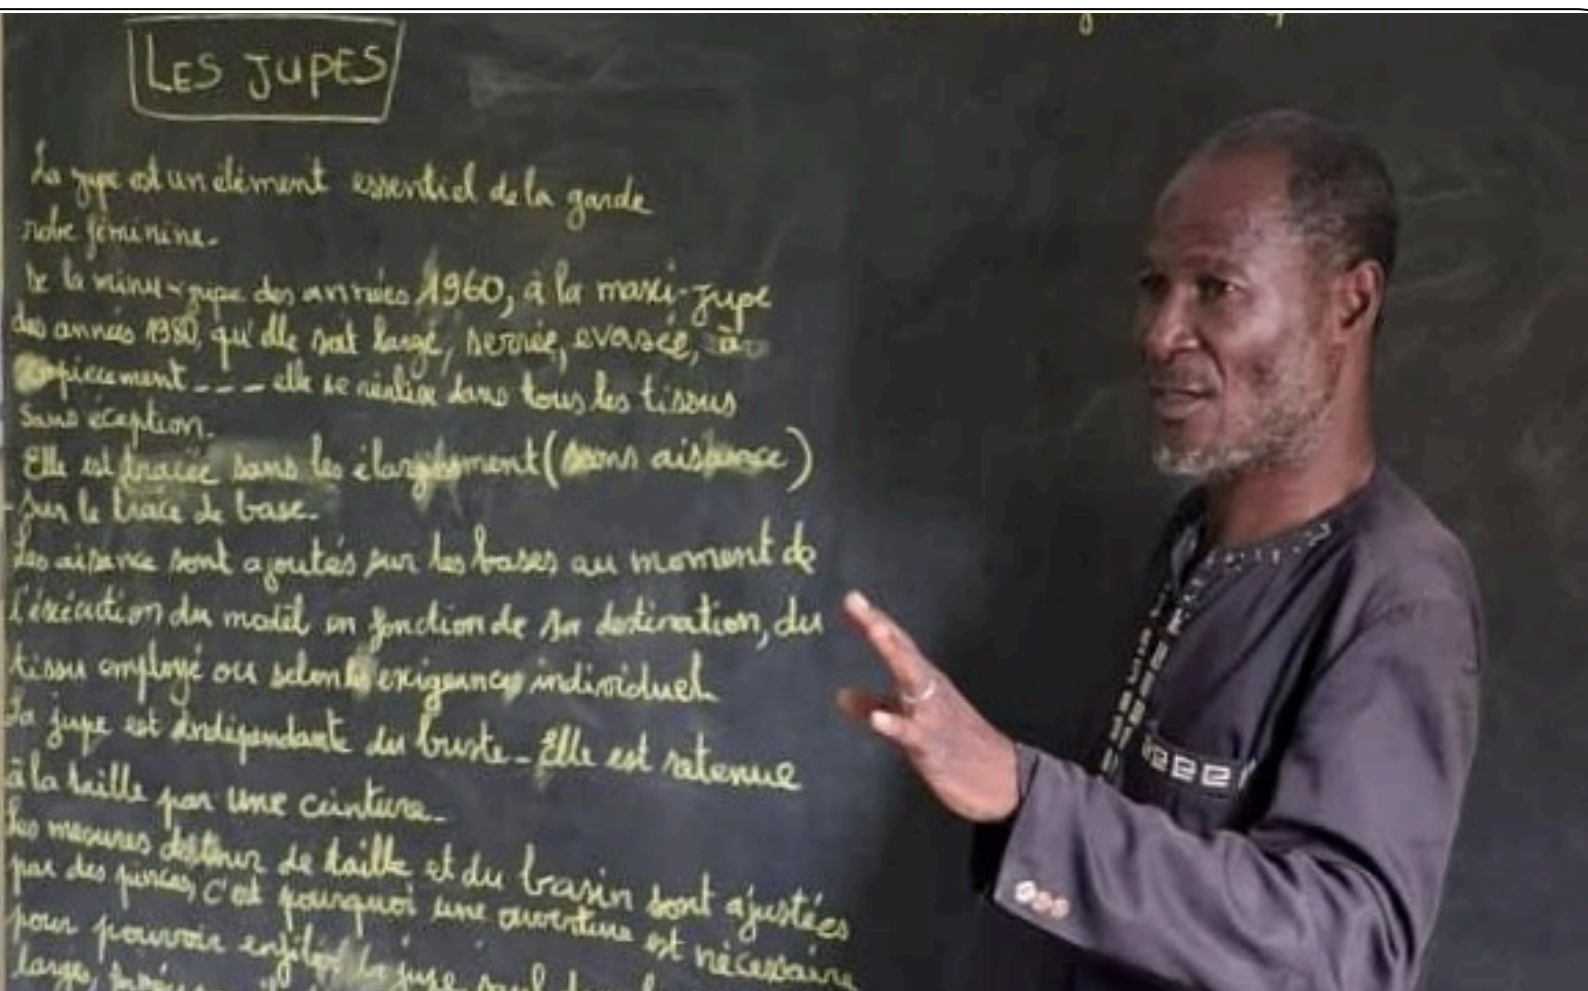 LES JUPES
La jupe est un élément essentiel de la garde
robe féminine.
De la mini-jupe des années 1960, à la maxi-jupe
des années 1980, qu'elle soit large, serrée, evasée, à
empiecement --- elle se réalise dans tous les tissus
sans éception.
Elle est tracée sans les élargissement (sans aisance)
sur le tracé de base.
Les aisance sont ajoutés sur les bases au moment de
l'éxécution du modèl en fonction de sa destination, du
tissu employé ou selon exigences individuel
La jupe est indépendante du buste - Elle est retenue
à la taille par une ceinture.
Les mesures de taille et du bassin sont ajustées
par des pinces, c'est pourquoi une ouverture est nécessaire
pour pouvoir enfiler la jupe sauf
large,